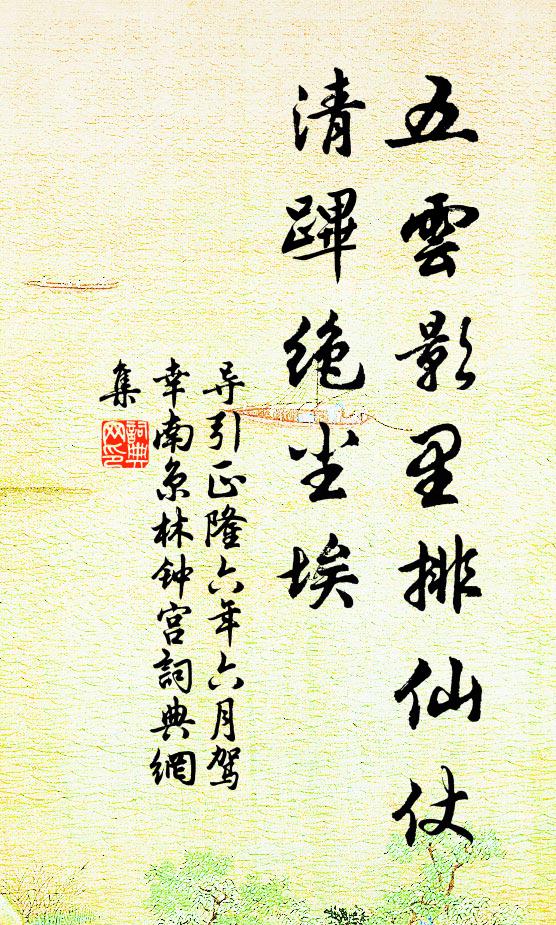 五雲影里排仙仗
清蹕绝尘埃
导引正隆六年六月驾
幸南京林钟宫詞典網
集
詞典
网印